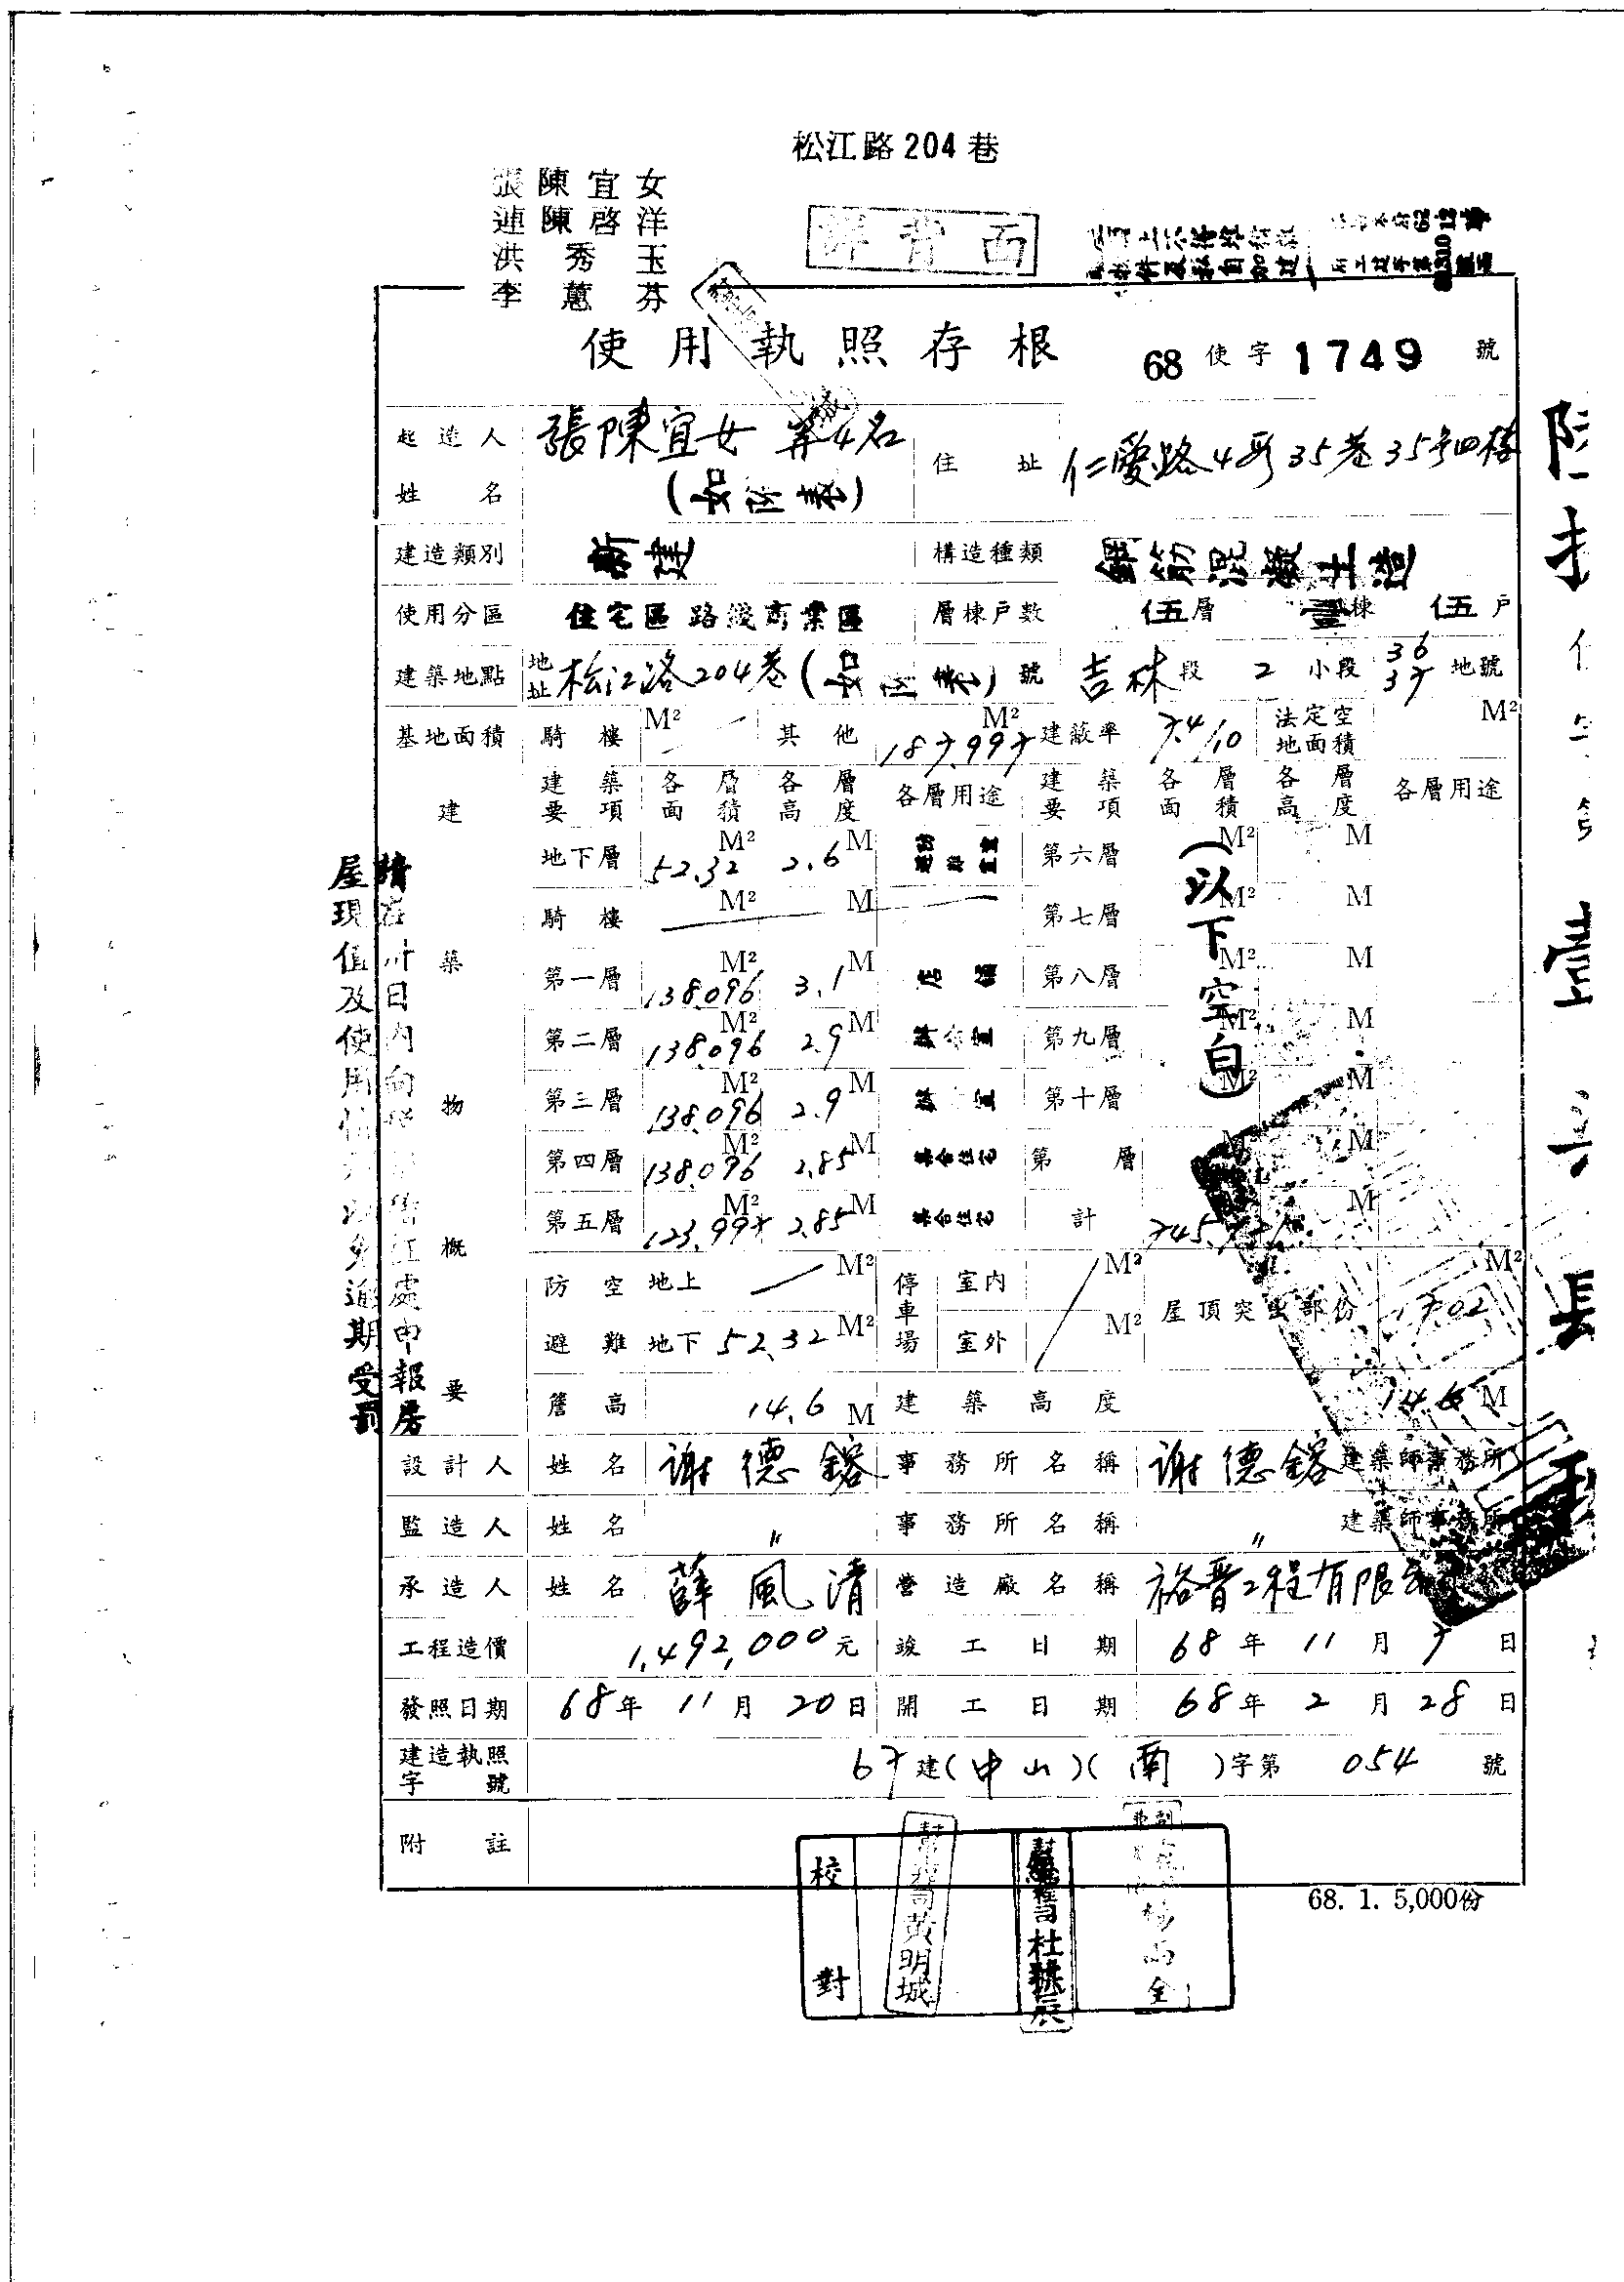 松江路204巷
張陳宜女
連陳啓洋
洪秀玉
李蕙芬
詳背面
使用執照存根 68使字1749號
起造人姓名 張陳宜女 等4名(如附表) 住址 仁愛路4段35巷35号四樓
建造類別 新建 構造種類 鋼筋混凝土造
使用分區 住宅區路綫商業區 層棟戶數 伍層 壹棟 伍戶
建築地點 地址 松江路204巷(如附表)號 吉林段 2小段 36 37 地號
基地面積 騎樓 M² 其他 187.997 M² 建蔽率 7.4/10 法定空地面積 M²
建築物概要
建築要項 各層面積 各層高度 各層用途 建築要項 各層面積 各層高度 各層用途
地下層 52.32 M² 2.6 M 第六層 M² M
騎樓 M² M 第七層 M² M
(以下空白)
第一層 138.096 M² 3.1 M 店舖 第八層 M² M
第二層 138.096 M² 2.9 M 辦公室 第九層 M² M
第三層 138.096 M² 2.9 M 辦公室 第十層 M² M
第四層 138.096 M² 2.85 M 集合住宅 第 層 M² M
第五層 123.997 M² 2.85 M 集合住宅 計 M
防空避難 地上 M² 停車場 室內 M² 屋頂突出部份 17.02 M²
地下 52.32 M² 室外 M²
簷高 14.6 M 建築高度 14.6 M
設計人 姓名 謝德鎔 事務所名稱 謝德鎔建築師事務所
監造人 姓名 〃 事務所名稱 〃 建築師事務所
承造人 姓名 薛風清 營造廠名稱 裕晋工程有限
工程造價 1,492,000元 竣工日期 68年11月7日
發照日期 68年11月20日 開工日期 68年2月28日
建造執照字號 67建(中山)(南)字第054號
附註
68. 1. 5,000份
校對
黃明城